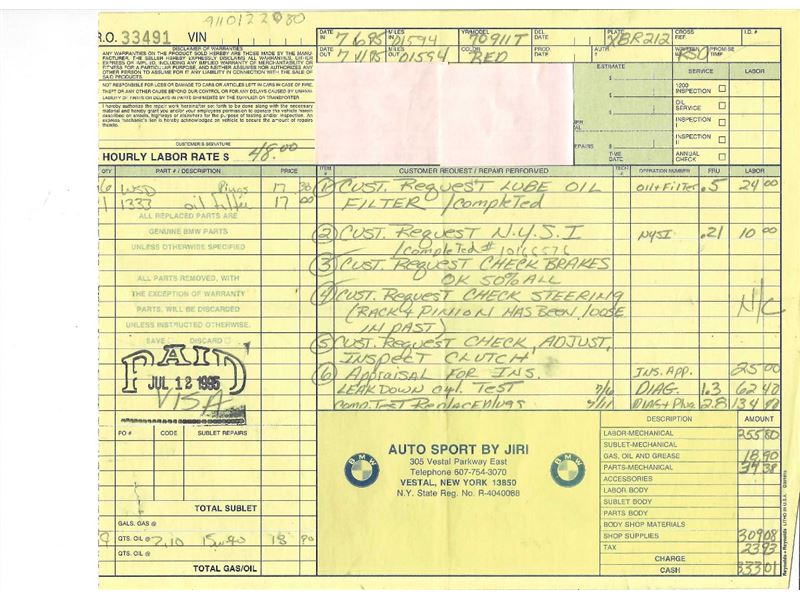 9110122080
R.O. 33491 VIN
DATE IN 7 6 95 MILES IN 01594 YR/MODEL 70 911T DEL DATE PLATE YBR212 CROSS REF. I.D. #
DATE OUT 7 11 95 MILES OUT 01594 COLOR RED PROD. DATE AUTR # WRITTEN PROMISE TIME
DISCLAIMER OF WARRANTIES
ANY WARRANTIES ON THE PRODUCT SOLD HEREBY ARE THOSE MADE BY THE MANUFACTURER. THE SELLER HEREBY EXPRESSLY DISCLAIMS ALL WARRANTIES, EITHER EXPRESS OR IMPLIED, INCLUDING ANY IMPLIED WARRANTY OF MERCHANTABILITY OR FITNESS FOR A PARTICULAR PURPOSE, AND NEITHER ASSUMES NOR AUTHORIZES ANY OTHER PERSON TO ASSUME FOR IT ANY LIABILITY IN CONNECTION WITH THE SALE OF SAID PRODUCTS.
NOT RESPONSIBLE FOR LOSS OR DAMAGE TO CARS OR ARTICLES LEFT IN CARS IN CASE OF FIRE, THEFT OR ANY OTHER CAUSE BEYOND OUR CONTROL OR FOR ANY DELAYS CAUSED BY UNAVAILABILITY OF PARTS OR DELAYS IN PARTS SHIPMENTS BY THE SUPPLIER OR TRANSPORTER.
I hereby authorize the repair work hereinafter set forth to be done along with the necessary material and hereby grant you and/or your employees permission to operate the vehicle herein described on streets, highways or elsewhere for the purpose of testing and/or inspection. An express mechanic's lien is hereby acknowledged on vehicle to secure the amount of repairs thereto.
CUSTOMER'S SIGNATURE
HOURLY LABOR RATE $ 48.00
ESTIMATE
$
$
$
SERVICE LABOR
1200 INSPECTION
OIL SERVICE
INSPECTION I
INSPECTION II
ANNUAL CHECK
TIME DATE
QTY PART # / DESCRIPTION PRICE
6 WSD Plugs 17
1 1333 oil filter 17 00
ALL REPLACED PARTS ARE
GENUINE BMW PARTS
UNLESS OTHERWISE SPECIFIED
ALL PARTS REMOVED, WITH
THE EXCEPTION OF WARRANTY
PARTS, WILL BE DISCARDED
UNLESS INSTRUCTED OTHERWISE.
SAVE DISCARD
PAID
JUL 12 1995
VISA
ITEM # CUSTOMER REQUEST / REPAIR PERFORMED TECH # OPERATION NUMBER FRU LABOR
1 CUST. Request LUBE OIL Oil+Filter .5 24 00
FILTER / Completed
2 CUST. Request N.Y.S.I NYSI .21 10 00
/completed # 10166576
3 CUST. Request CHECK BRAKES
OK 50% ALL
4 CUST. Request CHECK STEERING N/C
(RACK + PINION HAS BEEN LOOSE
IN PAST)
5 CUST. Request CHECK, ADJUST,
INSPECT CLUTCH
6 Appraisal FOR INS. INS. App. 25 00
LEAKDOWN cyl. TEST 7/6 DIAG. 1.3 62 40
Comp. Test Replace plugs 7/11 DIAG + Plug 2.8 134 40
PO # CODE SUBLET REPAIRS
TOTAL SUBLET
GALS. GAS @
9 QTS. OIL @ 2.10 15w40 18 90
QTS. OIL @
TOTAL GAS/OIL
BMW
AUTO SPORT BY JIRI
305 Vestal Parkway East
Telephone 607-754-3070
VESTAL, NEW YORK 13850
N.Y. State Reg. No. R-4040088
BMW
DESCRIPTION AMOUNT
LABOR-MECHANICAL 255 80
SUBLET-MECHANICAL
GAS, OIL AND GREASE 18.90
PARTS-MECHANICAL 34 38
ACCESSORIES
LABOR BODY
SUBLET BODY
PARTS BODY
BODY SHOP MATERIALS
SHOP SUPPLIES 309 08
TAX 23 93
CHARGE
CASH 333 01